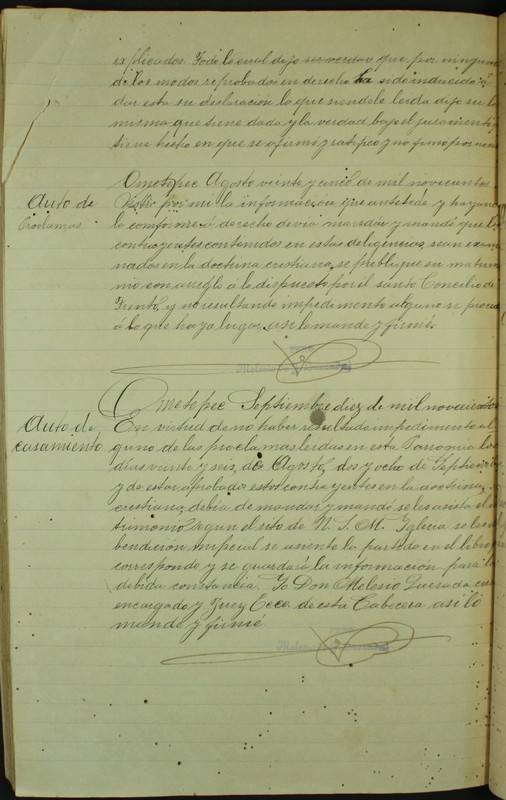 explicados. Todo lo cual dijo ser verdad que por ninguno
de los modos reprobados en derecho ha sido inducido á
dar esta su declaracion, la que siendole leida dijo ser la
misma que tiene dada y la verdad bajo el juramento q.
tiene hecho en que se afirmó y ratificó y no firmó por no
Auto de
Proclamas
Ometepec Agosto veinte y cinco de mil novecientos
Vista por mi la informacion que antecede y hayan
la conforme á derecho devia mandar y mandé que los
contrayentes contenidos en estas diligencias sean exami
nados en la doctrina cristiana, se publique su matrimo
nio con arreglo á lo dispuesto por el santo Concilio de
Trento, y no resultando impedimento alguno se proceda
á lo que haya lugar, asi lo mande y firmé.
Melesio Quesada
Auto de
casamiento
Ometepec Septiembre diez de mil novecientos
En virtud de no haber resultado impedimento al
guno de las proclamas leidas en esta Parroquia los
dias veinte y seis, de Agosto, dos y ocho de Septiembre
y de estar aprobados estos contrayentes en la doctrina
cristiana, debia de mandar y mandé se les asista el ma
trimonio segun el rito de N. S. M. Iglecia se les
bendicion nupcial se asiente la partida en el libro que
corresponde y se guardará la informacion para la
debida constancia. Yo Don Melesio Quesada cura
encargado y Juez Ecco. de esta Cabecera asi lo
mandé y firmé
Melesio Quesada